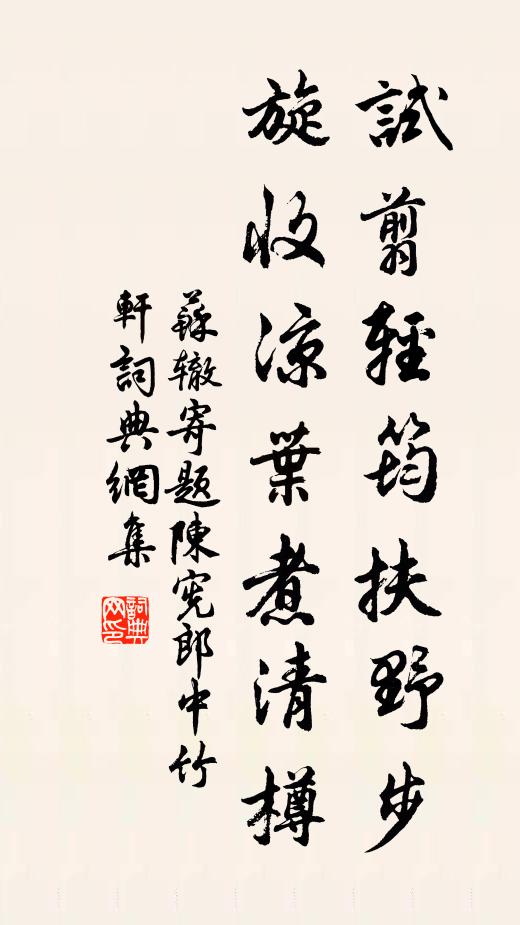 試翦輕筠扶野步
旋收涼葉煮清樽
蘇轍寄題陳憲郎中竹
軒詞典網集
詞典
网印